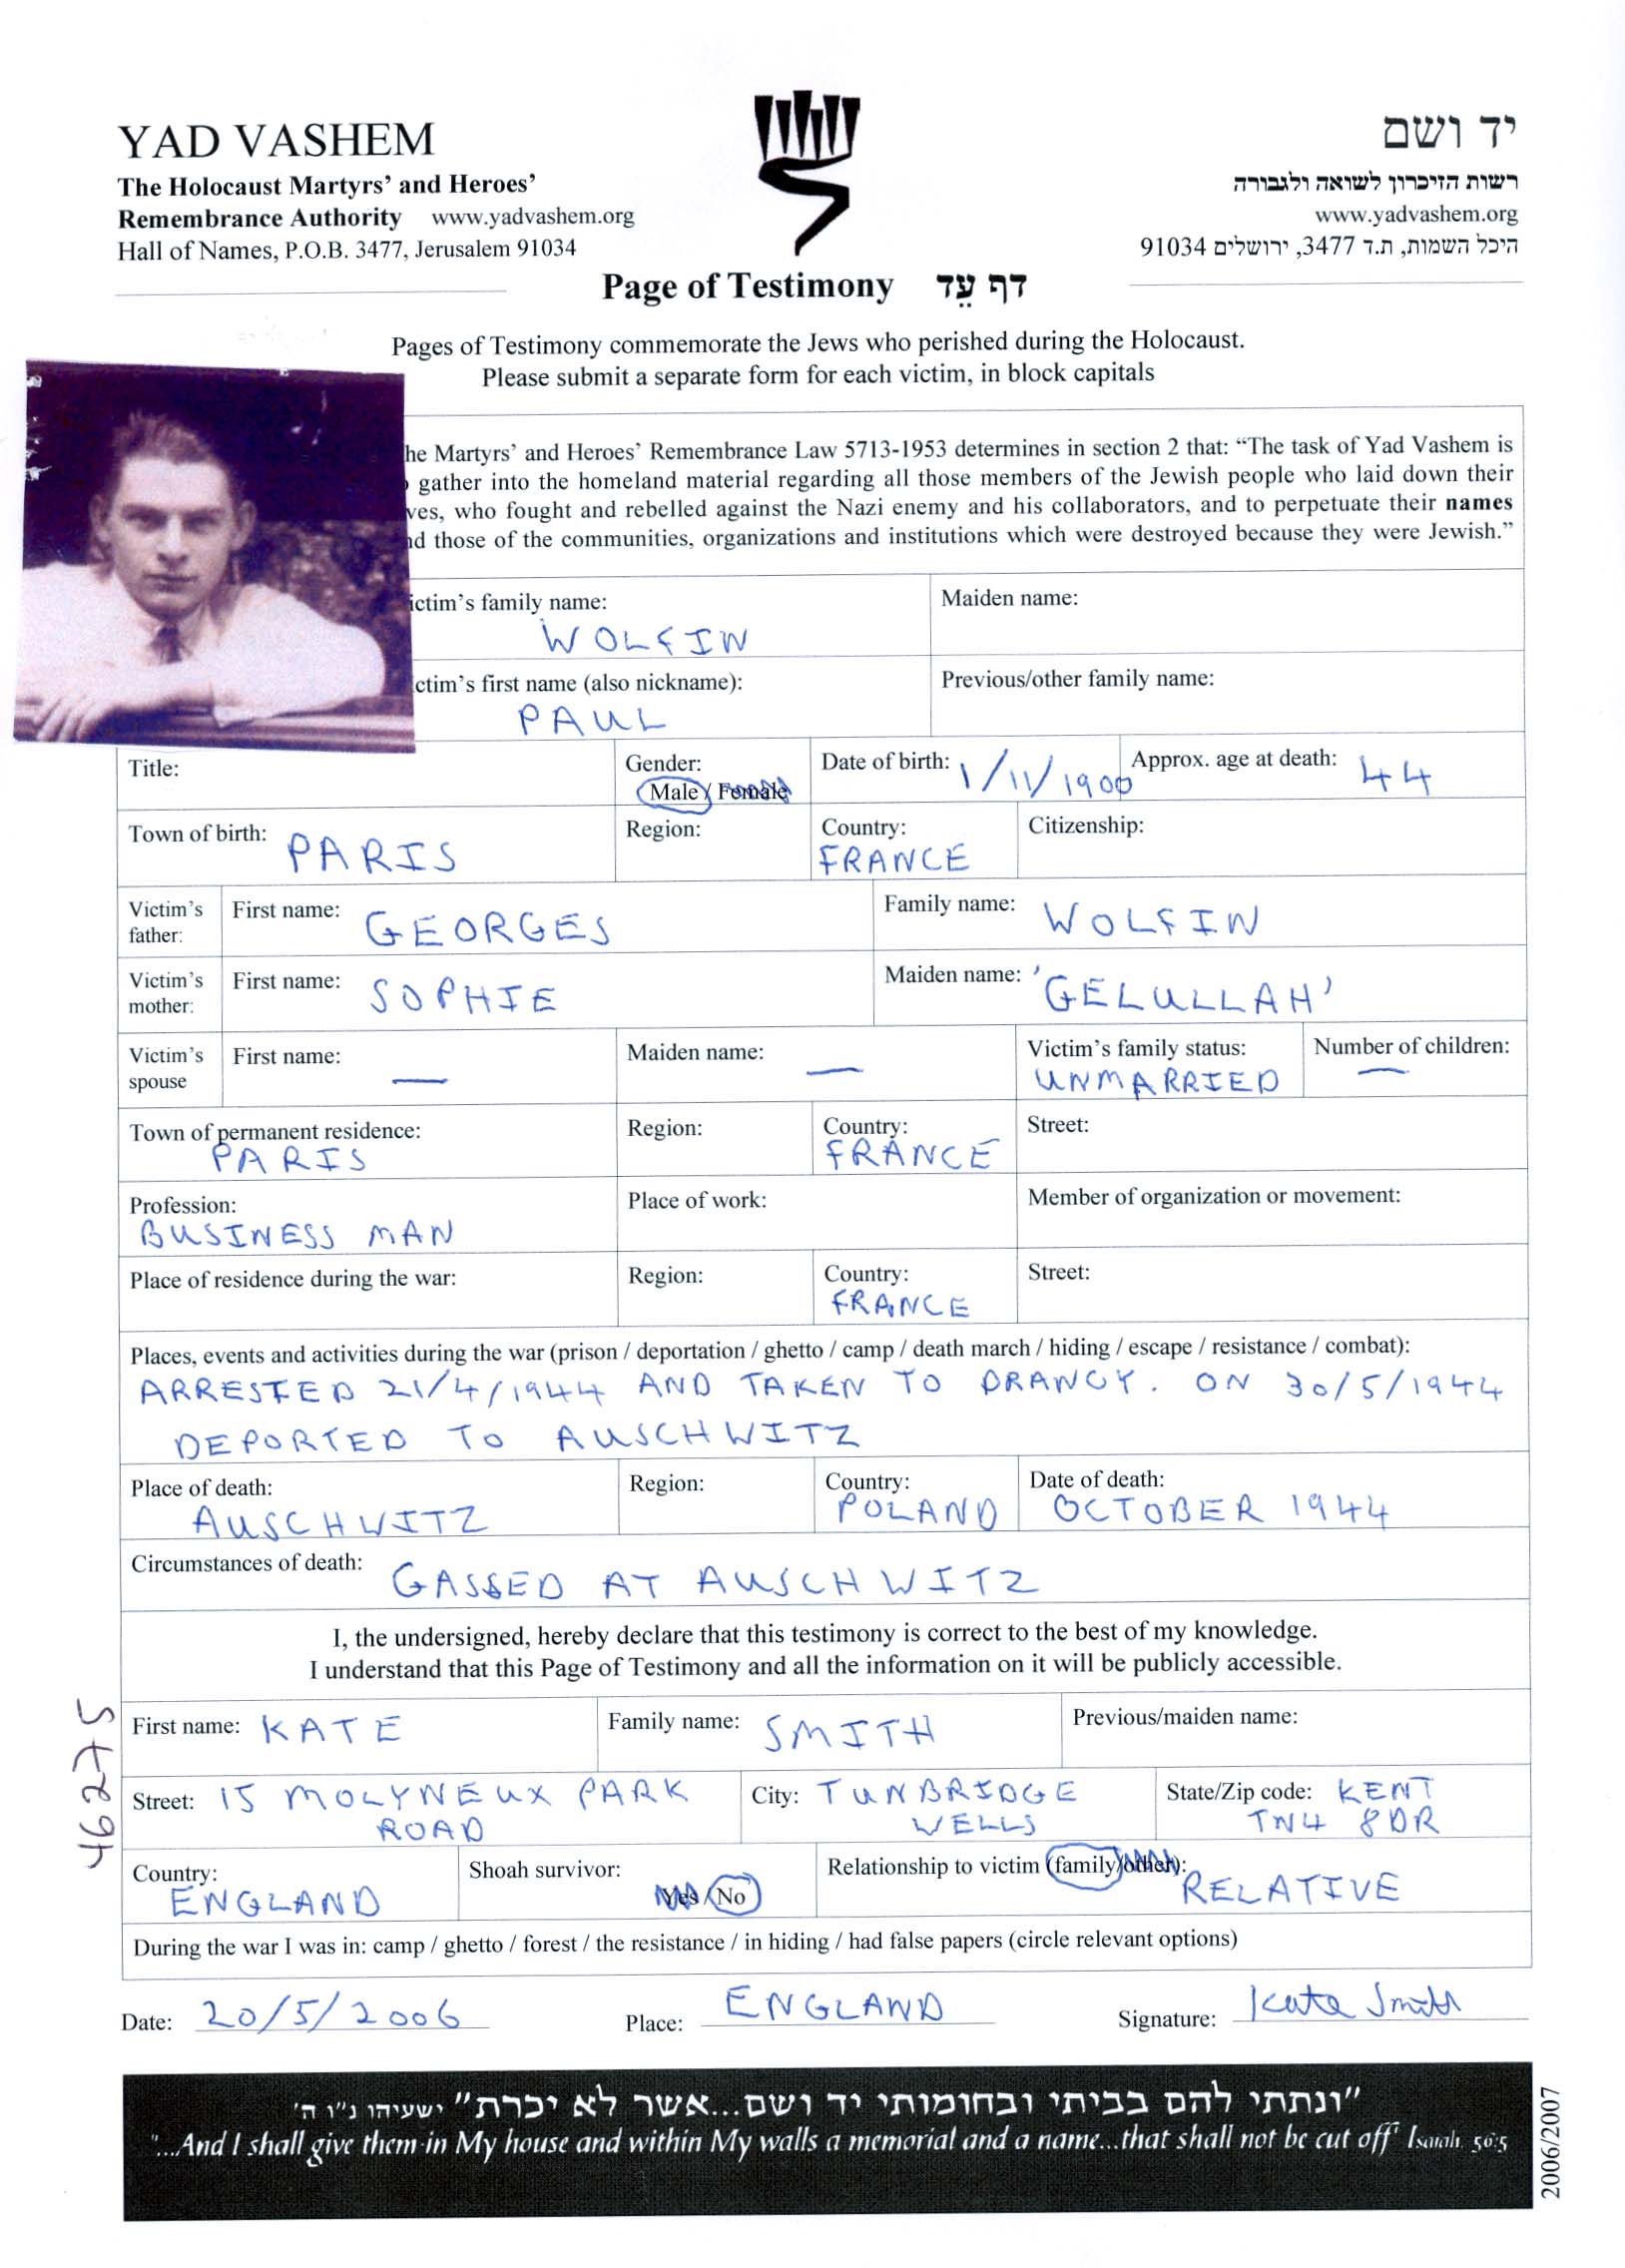 YAD VASHEM
The Holocaust Martyrs’ and Heroes’
Remembrance Authority www.yadvashem.org
Hall of Names, P.O.B. 3477, Jerusalem 91034
יד ושם
רשות הזיכרון לשואה ולגבורה
www.yadvashem.org
היכל השמות, ת.ד 3477, ירושלים 91034
Page of Testimony דף עֵד
Pages of Testimony commemorate the Jews who perished during the Holocaust.
Please submit a separate form for each victim, in block capitals
he Martyrs’ and Heroes’ Remembrance Law 5713-1953 determines in section 2 that: “The task of Yad Vashem is
gather into the homeland material regarding all those members of the Jewish people who laid down their
ves, who fought and rebelled against the Nazi enemy and his collaborators, and to perpetuate their names
nd those of the communities, organizations and institutions which were destroyed because they were Jewish.”
ictim’s family name: WOLFIN Maiden name:
ctim’s first name (also nickname): PAUL Previous/other family name:
Title: Gender: Male / Female Date of birth: 1/11/1900 Approx. age at death: 44
Town of birth: PARIS Region: Country: FRANCE Citizenship:
Victim’s father: First name: GEORGES Family name: WOLFIN
Victim’s mother: First name: SOPHIE Maiden name: 'GELULLAH'
Victim’s spouse First name: — Maiden name: — Victim’s family status: UNMARRIED Number of children: —
Town of permanent residence: PARIS Region: Country: FRANCE Street:
Profession: BUSINESS MAN Place of work: Member of organization or movement:
Place of residence during the war: Region: Country: FRANCE Street:
Places, events and activities during the war (prison / deportation / ghetto / camp / death march / hiding / escape / resistance / combat):
ARRESTED 21/4/1944 AND TAKEN TO DRANCY. ON 30/5/1944
DEPORTED TO AUSCHWITZ
Place of death: AUSCHWITZ Region: Country: POLAND Date of death: OCTOBER 1944
Circumstances of death: GASSED AT AUSCHWITZ
I, the undersigned, hereby declare that this testimony is correct to the best of my knowledge.
I understand that this Page of Testimony and all the information on it will be publicly accessible.
46275
First name: KATE Family name: SMITH Previous/maiden name:
Street: 15 MOLYNEUX PARK ROAD City: TUNBRIDGE WELLS State/Zip code: KENT TN4 8DR
Country: ENGLAND Shoah survivor: Yes / No Relationship to victim (family/other): RELATIVE
During the war I was in: camp / ghetto / forest / the resistance / in hiding / had false papers (circle relevant options)
Date: 20/5/2006 Place: ENGLAND Signature: Kate Smith
"ונתתי להם בביתי ובחומותי יד ושם...אשר לא יכרת" ישעיהו נ"ו ה'
"...And I shall give them in My house and within My walls a memorial and a name...that shall not be cut off" Isaiah 56:5
2006/2007